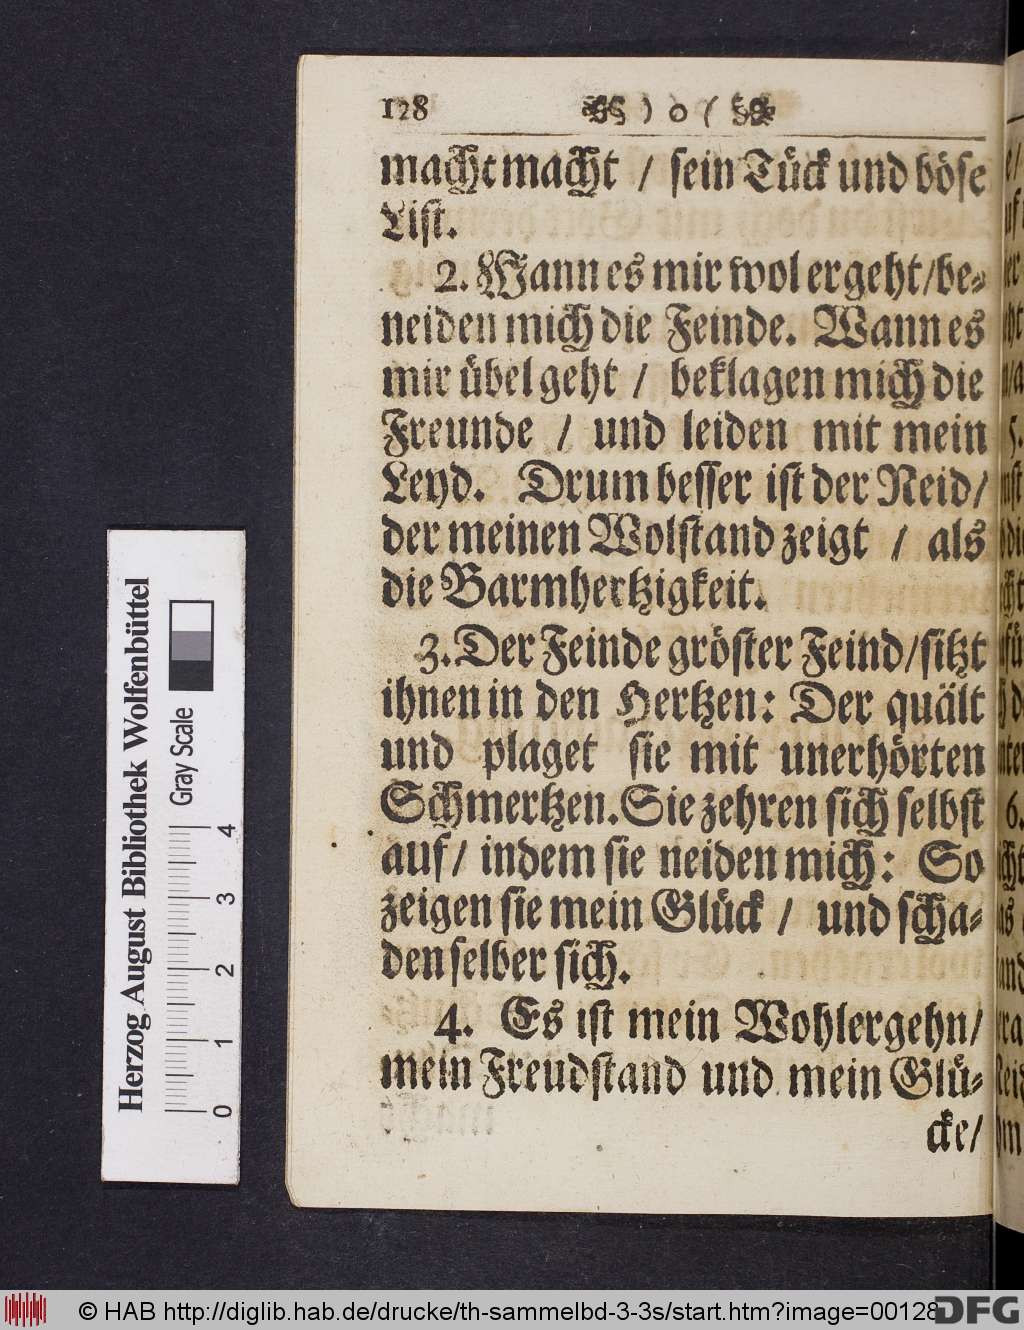 128 ) o (
macht macht / sein Tück und böse
List.
2. Wann es mir wol ergeht/be-
neiden mich die Feinde. Wann es
mir übel geht / beklagen mich die
Freunde / und leiden mit mein
Leyd. Drum besser ist der Neid/
der meinen Wolstand zeigt / als
die Barmhertzigkeit.
3. Der Feinde gröster Feind/sitzt
ihnen in den Hertzen: Der quält
und plaget sie mit unerhörten
Schmertzen. Sie zehren sich selbst
auf/ indem sie neiden mich: So
zeigen sie mein Glück / und scha-
den selber sich.
4. Es ist mein Wohlergehn/
mein Freudstand und mein Glü-
cke/
Herzog August Bibliothek Wolfenbüttel
Gray Scale
0 1 2 3 4
© HAB http://diglib.hab.de/drucke/th-sammelbd-3-3s/start.htm?image=00128
DFG